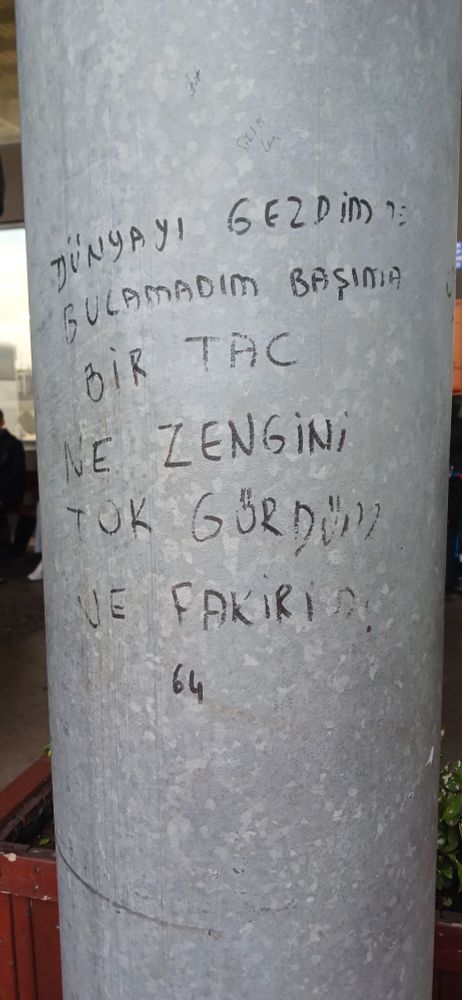 DÜNYAYI GEZDİM
BULAMADIM BAŞIMA
BİR TAC
NE ZENGİNİ
TOK GÖRDÜM
NE FAKİRİ
64